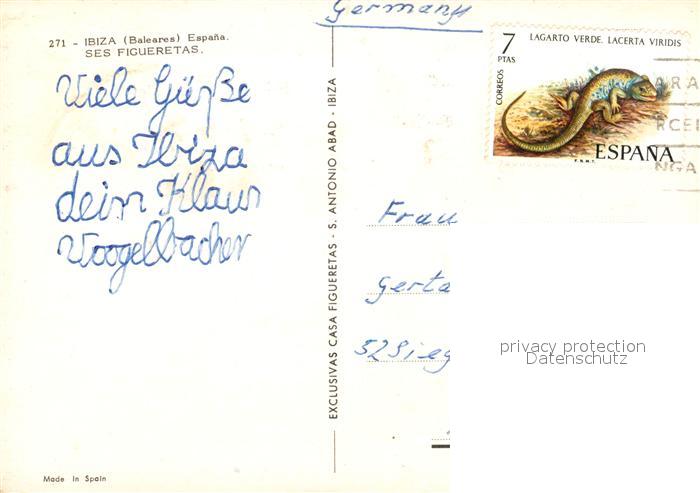 Germany
271 - IBIZA (Baleares) España.
SES FIGUERETAS.
Viele Güße
aus Ibiza
dein Klaus
Voogelbacher
EXCLUSIVAS CASA FIGUERETAS - S. ANTONIO ABAD - IBIZA
7
PTAS
LAGARTO VERDE. LACERTA VIRIDIS
CORREOS
F.N.M.T.
ESPAÑA
ARA
RCEL
NGA
Frau
Gerta
52 Sieg
privacy protection
Datenschutz
Made In Spain